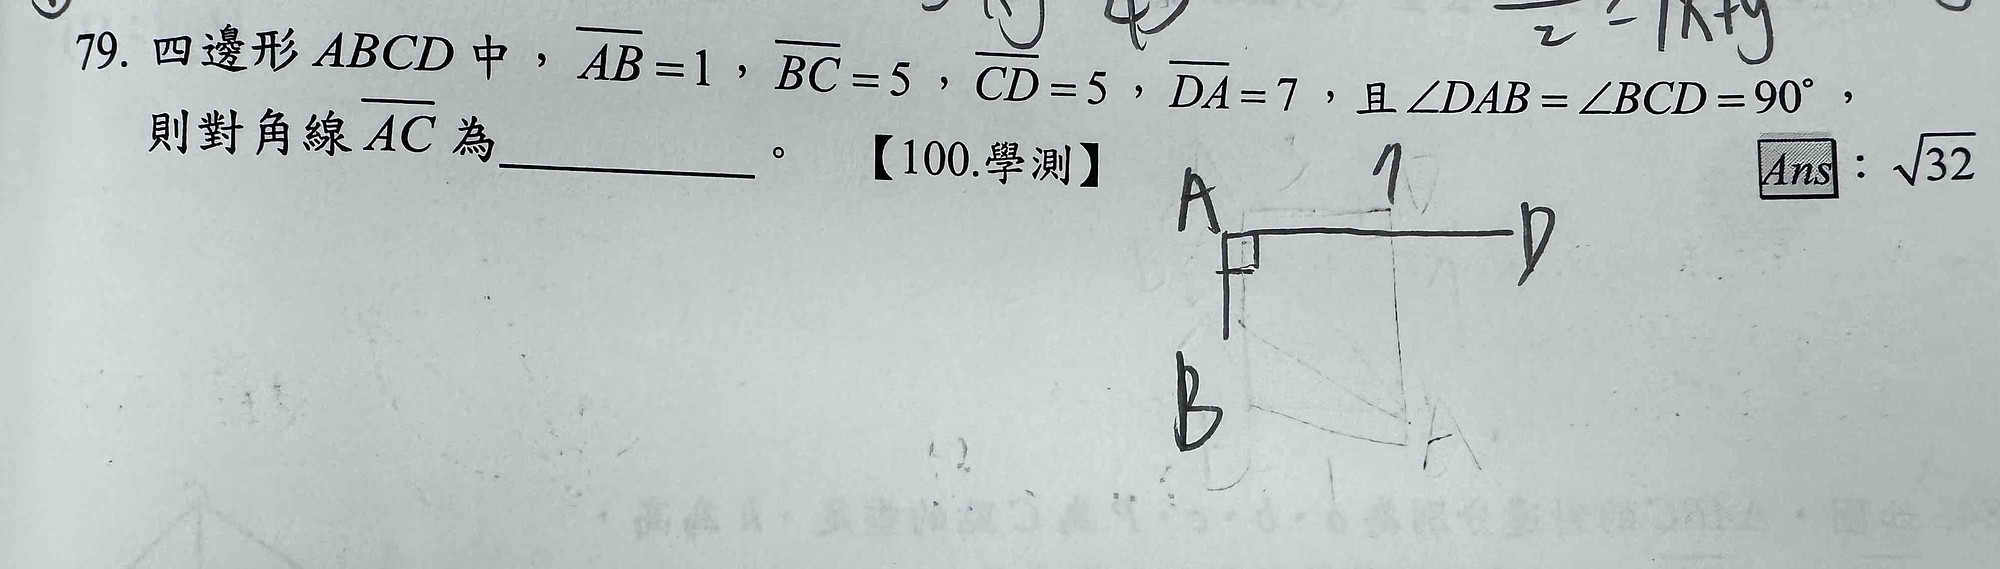 79. 四邊形 ABCD 中，AB=1，BC=5，CD=5，DA=7，且∠DAB=∠BCD=90°，
則對角線 AC 為________。【100.學測】 Ans：√32
A 7 D
B